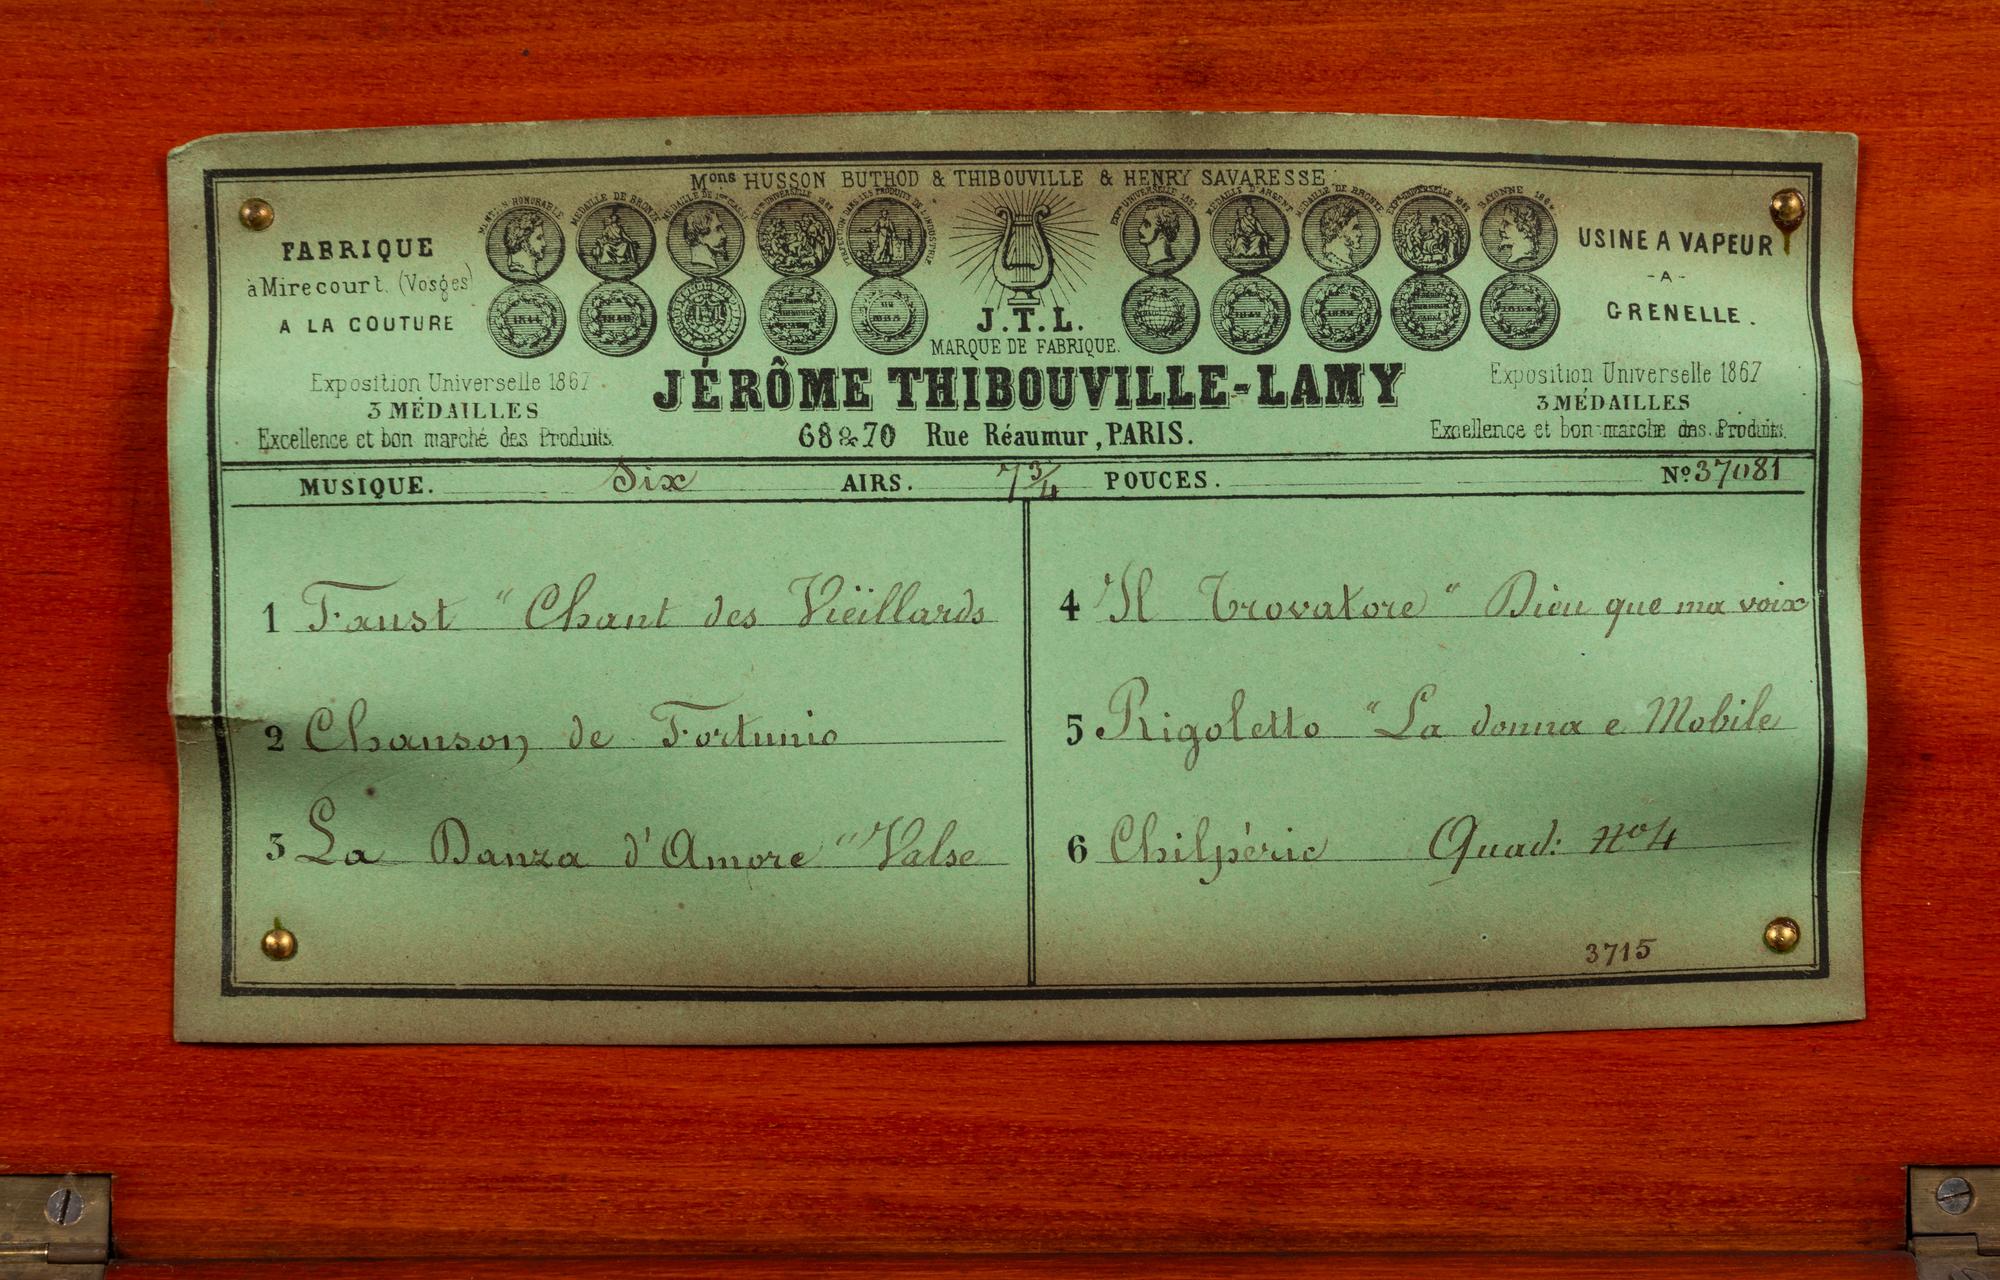 Mons HUSSON BUTHOD & THIBOUVILLE & HENRY SAVARESSE
MENTION HONORABLE
MÉDAILLE DE BRONZE
EXPon UNIVERSELLE 1851
MÉDAILLE D'ARGENT
MÉDAILLE DE BRONZE
BAYONNE
FABRIQUE
à Mirecourt. (Vosges)
A LA COUTURE
USINE A VAPEUR
-A-
GRENELLE.
J.T.L.
MARQUE DE FABRIQUE.
JÉRÔME THIBOUVILLE-LAMY
68 & 70 Rue Réaumur, PARIS.
Exposition Universelle 1867
3 MÉDAILLES
Excellence et bon marché des Produits.
Exposition Universelle 1867
3 MÉDAILLES
Excellence et bon marché des Produits.
MUSIQUE. Six AIRS. 7 3/4 POUCES. No 37081
1 Faust " Chant des Vieillards
2 Chanson de Fortunio
3 La Danza d'Amore " Valse
4 Il Trovatore " Dieu que ma voix
5 Rigoletto " La donna e Mobile
6 Chilpéric Quad: no 4
3715